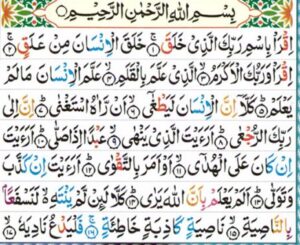 بِسْمِ اللهِ الرَّحْمٰنِ الرَّحِيْمِ
اِقْرَاْ بِاسْمِ رَبِّكَ الَّذِيْ خَلَقَ ۝١ خَلَقَ الْاِنْسَانَ مِنْ عَلَقٍ ۝٢
اِقْرَاْ وَرَبُّكَ الْاَكْرَمُ ۝٣ الَّذِيْ عَلَّمَ بِالْقَلَمِ ۝٤ عَلَّمَ الْاِنْسَانَ مَا لَمْ
يَعْلَمْ ۝٥ كَلَّا اِنَّ الْاِنْسَانَ لَيَطْغٰى ۝٦ اَنْ رَّاٰهُ اسْتَغْنٰى ۝٧ اِنَّ اِلٰى
رَبِّكَ الرُّجْعٰى ۝٨ اَرَءَيْتَ الَّذِيْ يَنْهٰى ۝٩ عَبْدًا اِذَا صَلّٰى ۝١٠ اَرَءَيْتَ
اِنْ كَانَ عَلَى الْهُدٰى ۝١١ اَوْ اَمَرَ بِالتَّقْوٰى ۝١٢ اَرَءَيْتَ اِنْ كَذَّبَ
وَتَوَلّٰى ۝١٣ اَلَمْ يَعْلَمْ بِاَنَّ اللهَ يَرٰى ۝١٤ كَلَّا لَئِنْ لَّمْ يَنْتَهِ لَنَسْفَعًا
بِالنَّاصِيَةِ ۝١٥ نَاصِيَةٍ كَاذِبَةٍ خَاطِئَةٍ ۝١٦ فَلْيَدْعُ نَادِيَهٗ ۝١٧